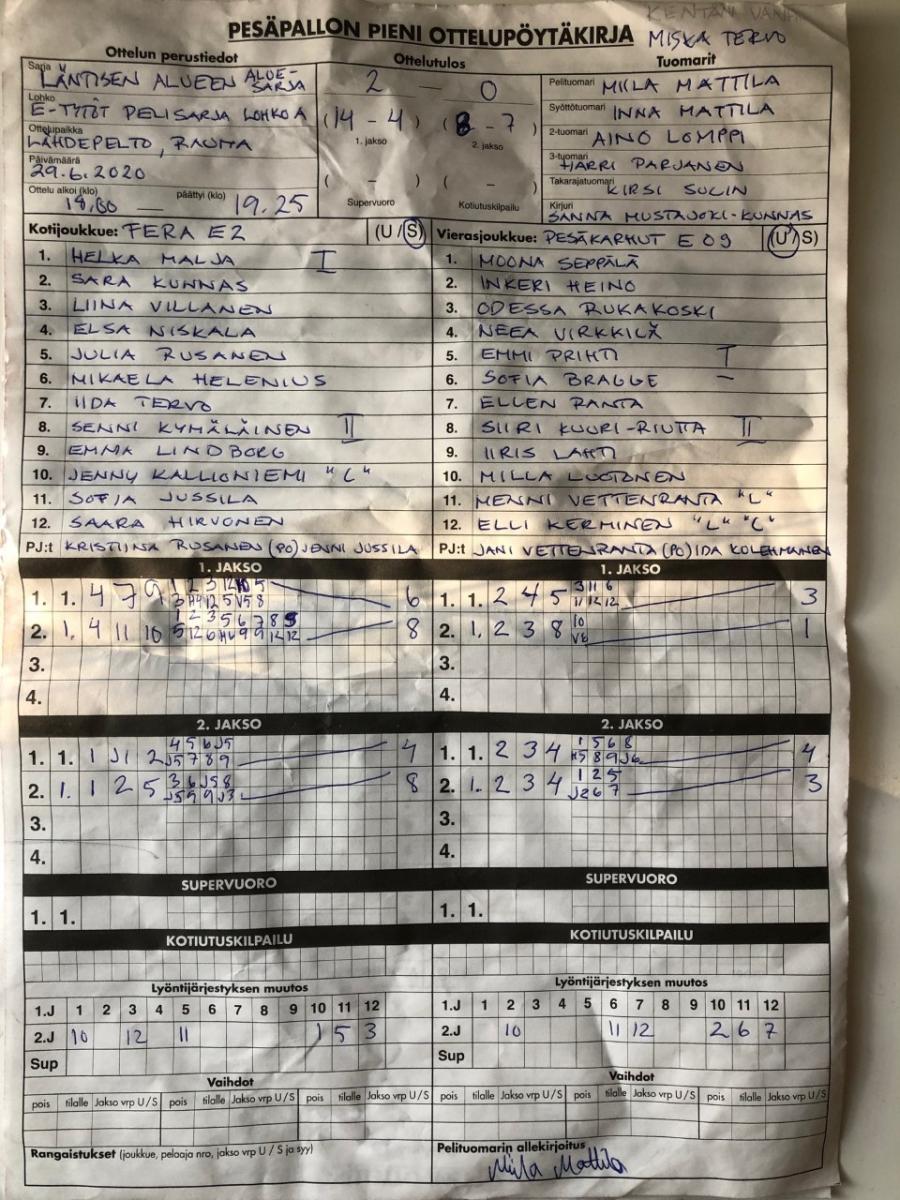 PESÄPALLON PIENI OTTELUPÖYTÄKIRJA MISKA TERVO
Ottelun perustiedot Ottelutulos Tuomarit
Sarja LÄNTISEN ALUEEN ALUE-SARJA
Lohko E-TYTÖT PELISARJA LOHKO A
Ottelupaikka LÄHDEPELTO, RAUMA
Päivämäärä 29.6.2020
Ottelu alkoi (klo) 18.00 — päättyi (klo) 19.25
2 — 0
(14 - 4) (8 - 7)
1. jakso 2. jakso
( - ) ( - )
Supervuoro Kotiutuskilpailu
Pelituomari MIILA MATTILA
Syöttötuomari INNA MATTILA
2-tuomari AINO LOMPPI
3-tuomari HARRI PARJANEN
Takarajatuomari KIRSI SULIN
Kirjuri SANNA MUSTAJOKI-KUNNAS
Kotijoukkue: FERA E2 (U / S)
1. HELKA MALJA I
2. SARA KUNNAS
3. LIINA VILLANEN
4. ELSA NISKALA
5. JULIA RUSANEN
6. MIKAELA HELENIUS
7. IIDA TERVO
8. SENNI KYMÄLÄINEN II
9. EMMA LINDBORG
10. JENNY KALLIONIEMI "C"
11. SOFJA JUSSILA
12. SAARA HIRVONEN
PJ:t KRISTIINA RUSANEN (PO) JENNI JUSSILA
Vierasjoukkue: PESÄKARHUT E 09 (U / S)
1. MOONA SEPPÄLÄ
2. INKERI HEINO
3. ODESSA RUKAKOSKI
4. NEEA VIRKKILÄ
5. EMMI PRIHTI I
6. SOFIA BRAGGE –
7. ELLEN RANTA
8. SIIRI KUURI-RIUTTA II
9. IIRIS LAHTI
10. MILLA LUOTONEN
11. MENNI VETTENRANTA "L"
12. ELLI KERMINEN "L" "C"
PJ:t JANI VETTENRANTA (PO) IDA KOLEHMAINEN
1. JAKSO
1. 1. 4 7 9 6
2. 1, 4 11 10 8
3.
4.
1. JAKSO
1. 1. 2 4 5 3 11 6 3
11 12 12
2. 1, 2 3 8 10 1
V8
3.
4.
2. JAKSO
1. 1. 1 J1 2 4 5 6 J5 4
J5 7 8 9
2. 1. 1 2 5 3 6 J5 8 8
J5 9 9 J3
3.
4.
2. JAKSO
1. 1. 2 3 4 1 5 6 8 4
8 9 J6
2. 1. 2 3 4 1 2 5 3
J2 6 7
3.
4.
SUPERVUORO
1. 1.
SUPERVUORO
1. 1.
KOTIUTUSKILPAILU
KOTIUTUSKILPAILU
Lyöntijärjestyksen muutos
1.J 1 2 3 4 5 6 7 8 9 10 11 12
2.J 10 12 11 1 5 3
Sup
Lyöntijärjestyksen muutos
1.J 1 2 3 4 5 6 7 8 9 10 11 12
2.J 10 11 12 2 6 7
Sup
Vaihdot
pois tilalle Jakso vrp U / S pois tilalle Jakso vrp U / S pois tilalle Jakso vrp U / S
Vaihdot
pois tilalle Jakso vrp U / S pois tilalle Jakso vrp U / S pois tilalle Jakso vrp U / S
Rangaistukset (joukkue, pelaaja nro, jakso vrp U / S ja syy)
Pelituomarin allekirjoitus
Miila Mattila